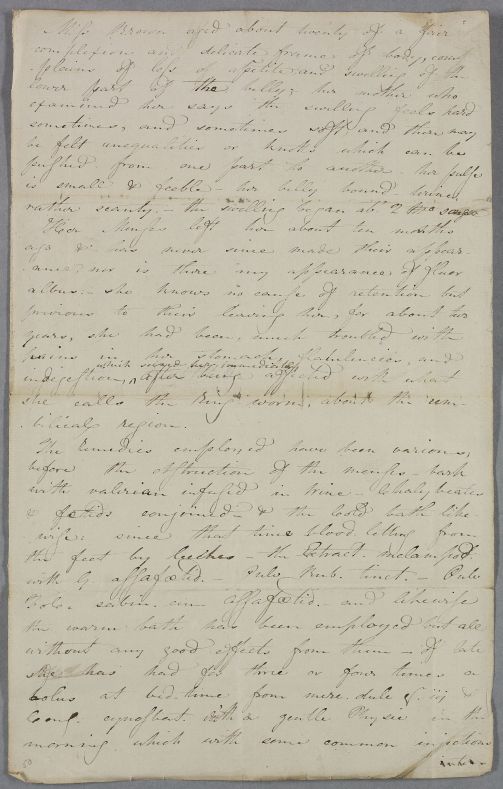 Miss Brown aged about twenty of a fair
complexion and delicate frame of body, com-
plains of loss of appetite and swelling of the
lower part of the belly; her mother who
examined her says the swelling feels hard
sometimes, and sometimes soft and there may
be felt unequalities or knots which can be
pushed from one part to another. her pulse
is small & feeble - her belly bound, urine,
rather scanty, - the swelling began ab. 2 mo
Her Menses left her about ten months
ago & has never since made their appear-
ance; nor is there any appearance of fluor
albus - she knows no cause of retention but
previous to their leaving her, for about two
years, she had been much troubled with
pains in her stomach, flatulencies, and
which seized her immediately
indigestion, after being affected with what
she calls the Ring-worm, about the um-
bilical region.
The Remedies employed have been various,
before the obstruction of the menses - bark
with valerian infused in wine - Chalybeates
& fœtids conjoined & the cold bath like-
wise; since that time blood letting from
the feet by leeches - the Extract. melampod.
with G. assafœtid. - Pulv. Rub. tinct. - Pulv
Fol. sabin. cum Assafœtid. - and likewise
the warm bath has been employed but all
without any good effects from them - of late
she has had for three or four times a
bolus at bed-time from merc. dulc. g. iij &
Cong. cynosbat. with a gentle Physic in the
morning which with some common injections